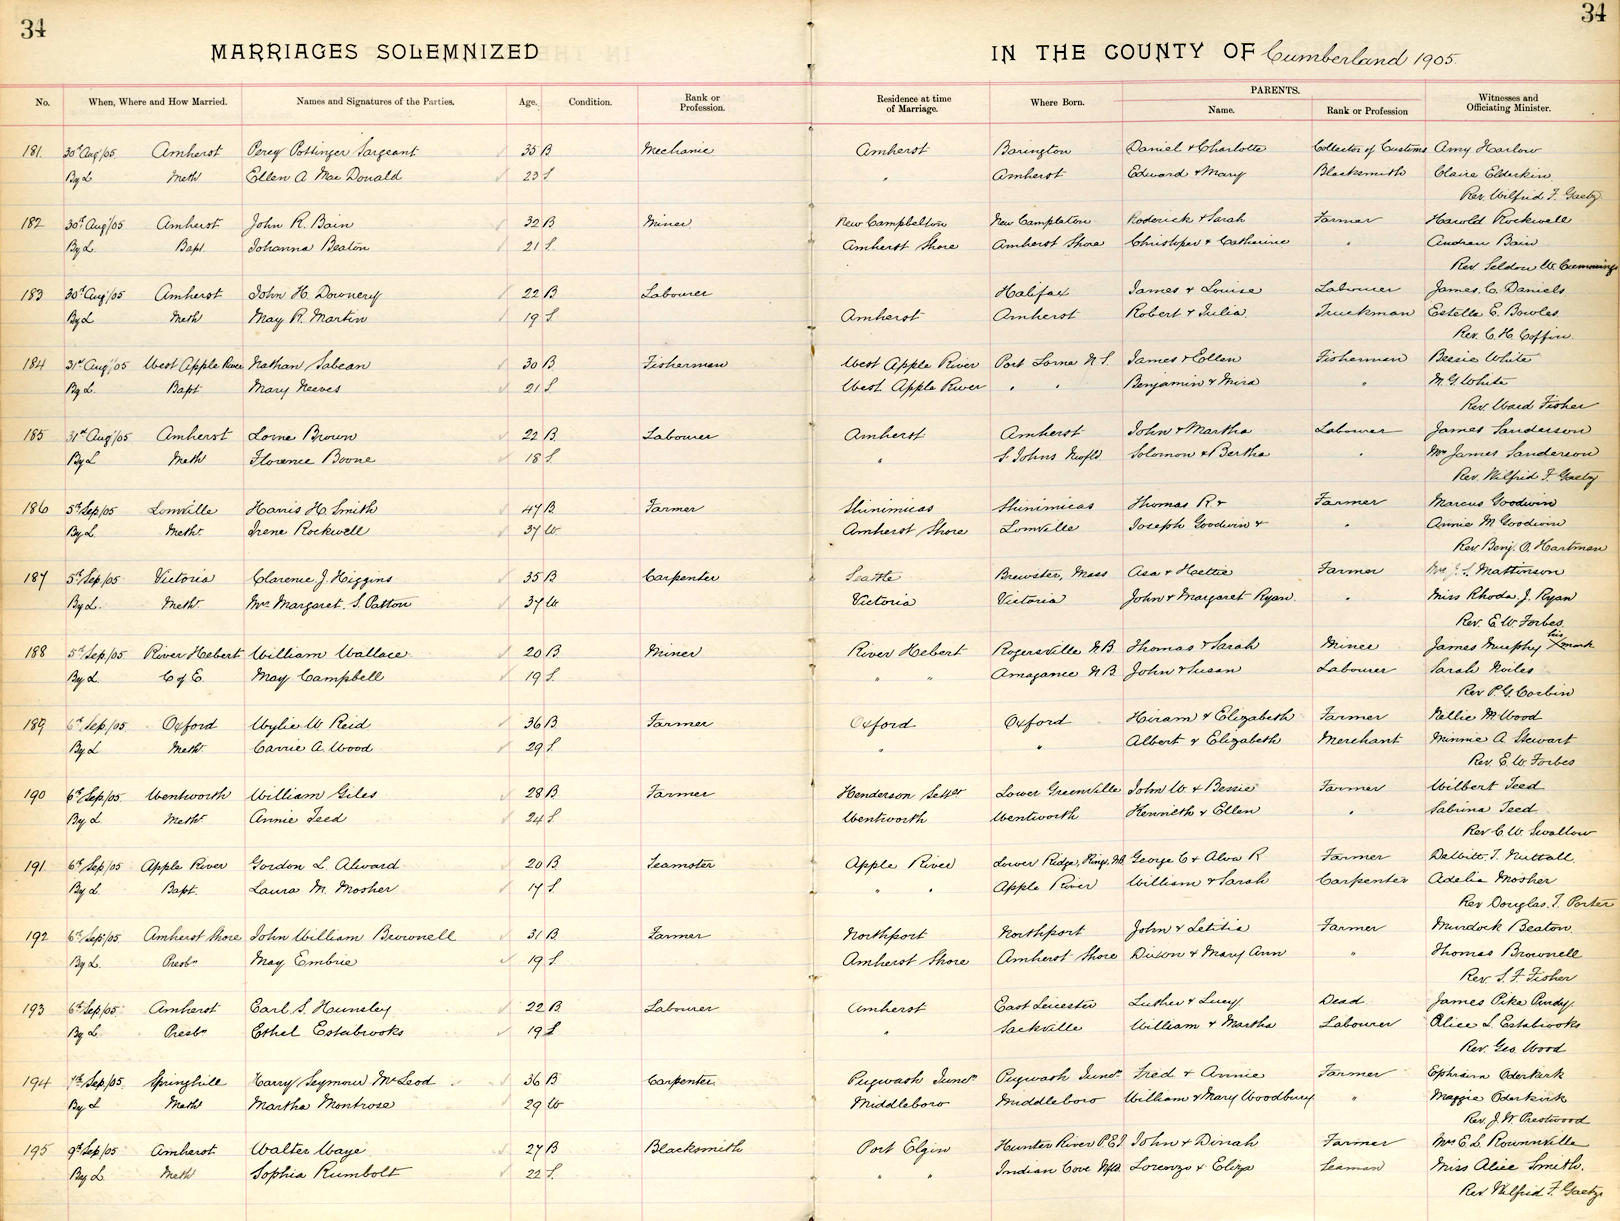 34
34
MARRIAGES SOLEMNIZED IN THE COUNTY OF Cumberland 1905.
No. When, Where and How Married. Names and Signatures of the Parties. Age. Condition. Rank or Profession. Residence at time of Marriage. Where Born. PARENTS. Name. Rank or Profession Witnesses and Officiating Minister.
181. 30th Aug/05 Amherst Percy Pottinger Sargeant 35 B Mechanic Amherst Barington Daniel & Charlotte Collector of Customs Amy Harlow
By L Meth Ellen A Mac Donald 23 S. " Amherst Edward & Mary Blacksmith Claire Elderkin
Rev. Wilfrid F. Gaetz
182 30th Aug/05 Amherst John R. Bain 32 B Miner New Campbelton New Campleton Roderick & Sarah Farmer Harold Rockwell
By L Bapt. Johanna Beaton 21 S. Amherst Shore Amherst Shore Christoper & Catherine " Andrew Bain
Rev Seldon W. Cummings
183 30th Aug/05 Amherst John H. Downery 22 B Labourer Halifax James & Louise Labourer James. C. Daniels
By L Meth May R. Martin 19 S. Amherst Amherst Robert & Julia Truckman Estella E. Bowles.
Rev. C. H. Coffin
184 31st Aug/05 West Apple River Nathan Sabean 30 B Fisherman West Apple River Port Lorne N.S. James & Ellen Fisherman Bessie White
By L. Bapt Mary Neeves 21 S. West Apple River " " Benjamin & Mira " M. G. White
Rev. Ward Fisher
185 31st Aug/05 Amherst Lorne Brown 22 B. Labourer Amherst Amherst John & Martha Labourer James Sanderson
By L Meth Florence Boone 18 S. " S. Johns Nwfld. Solomon & Bertha " Mrs James Sanderson
Rev. Wilfrid F. Gaetz
186 5th Sep/05 Linville Harris H. Smith 47 B Farmer Shinimicas Shinimicas Thomas R & Farmer Marcus Goodwin
By L. Meth. Irene Rockwell 37 W. Amherst Shore Linville Joseph Goodwin & " Annie M Goodwin
Rev. Benj. O. Hartman
187 5th Sep/05 Victoria Clarence J. Higgins 35 B Carpenter Seattle Brewster, Mass Asa & Hettie Farmer Mrs J. S. Mattinson
By L. Meth Mrs Margaret. S. Patton 37 W Victoria Victoria John & Margaret Ryan. " Miss Rhoda. J. Ryan
Rev. E. W. Forbes.
188 5th Sep/05 River Hebert William Wallace 20 B Miner River Hebert Rogersville N B Thomas & Sarah Miner James Murphy his X mark
By L C of E. May Campbell 19 S. " " Amagance N B. John & Susan Labourer Sarah Noiles
Rev P. G. Corbin
189 6th Sep/05 Oxford Wylie W Reid 36 B Farmer Oxford Oxford Hiram & Elizabeth Farmer Nellie M. Wood
By L Meth. Carrie A. Wood 29 S. " " Albert & Elizabeth Merchant Minnie A Stewart
Rev. E. W. Forbes
190 6th Sep/05 Wentworth William Giles 28 B Farmer Henderson Settlt Lower Greenville John W. & Bessie Farmer Wilbert Teed
By L Meth. Annie Teed 24 S. Wentworth Wentworth Kenneth & Ellen " Sabrina Teed
Rev C. W. Swallow
191 6th Sep/05 Apple River Gordon L. Alward 20 B. Teamster Apple River Lower Ridge, Kings, N.B. George C & Alva R Farmer DeWitt. T. Nuttall
By L Bapt. Laura M. Mosher 17 S. " " Apple River William & Sarah Carpenter Adelia Mosher
Rev Douglas. T. Porter
192 6th Sep/05 Amherst Shore John William Brownell 31 B. Farmer Northport Northport John & Letitia Farmer Murdock Beaton.
By L. Presbn May Embrie 19 S. Amherst Shore Amherst Shore Dixon & Mary Ann " Thomas Brownell
Rev. S. F. Fisher
193 6th Sep/05 Amherst Earl S. Hunsley 22 B. Labourer Amherst East Leicester Luther & Lucy Dead James Pike Purdy.
By L. Presbn Ethel Estabrooks 19 S " Sackville William & Martha Labourer Alice L Estabrooks
Rev. Geo. Wood
194 7th Sep/05. Springhill Harry Seymour McLeod 36 B Carpenter Pugwash Juncn Pugwash Juncn Fred & Annie Farmer Ephraim Oderkirk
By L Meth Martha Montrose 29 W Middleboro Middleboro William & Mary Woodbury " Maggie Oderkirk
Rev. J. W. Prestwood
195 9th Sep/05 Amherst Walter Waye 27 B Blacksmith Port Elgin Hunter River P.E.I. John & Dinah Farmer Mrs E. L. Rownville
By L. Meth Sophia Rumbolt 22 S. " " Indian Cove Nfld Lorenzo & Eliza Seaman Miss Alice Smith.
Rev Wilfrid F. Gaetz